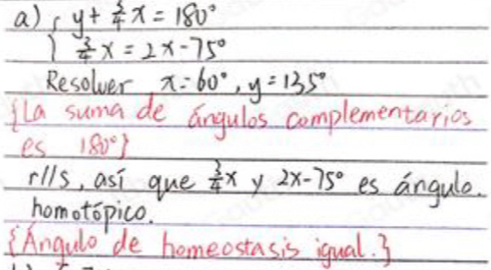 a) { y + 3/4 x = 180°
3/4 x = 2x - 75°
Resolver x = 60°, y = 135°
{La suma de ángulos complementarios
es 180°}
r//s, así que 3/4 x y 2x - 75° es ángulo.
homotópico.
{Ángulo de homeostasis igual.}